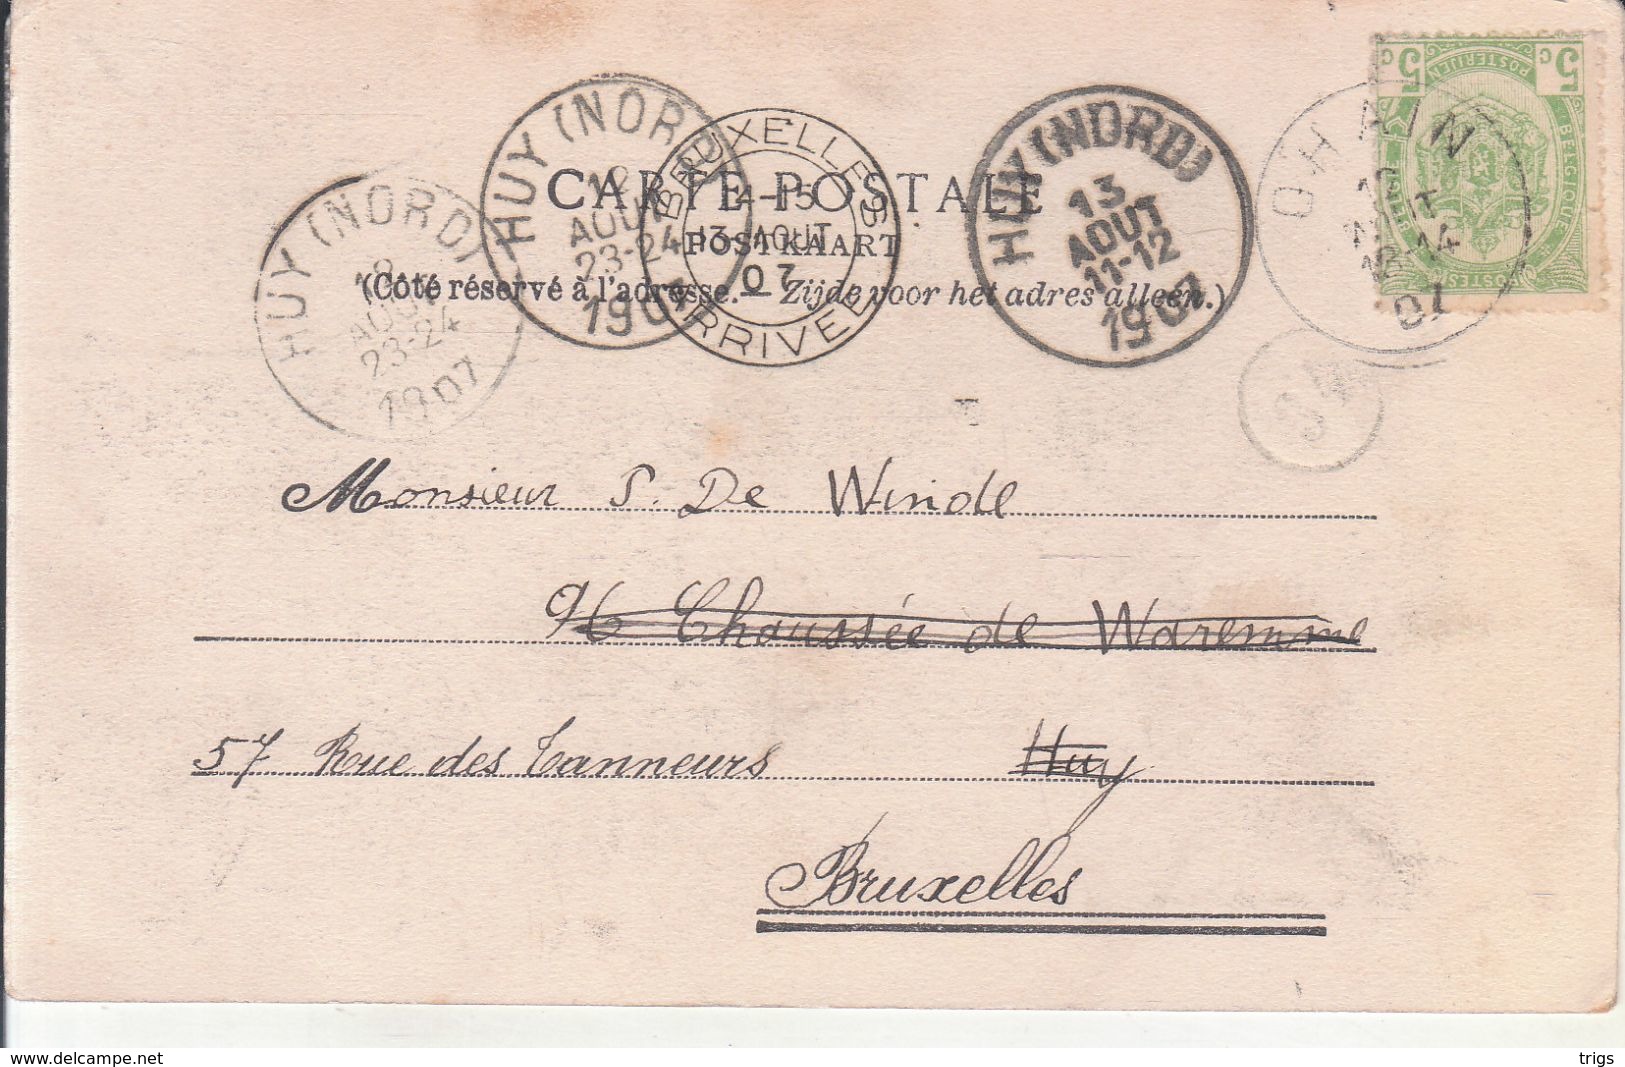 CARTE POSTALE
POSTKAART
(Côté réservé à l'adresse. — Zijde voor het adres alleen.)
HUY (NORD)
AOUT
23-24
1907
HUY (NORD)
12
AOUT
23-24
1907
BRUXELLES
14-15
13-AOUT
07
ARRIVEE
HUY (NORD)
13
AOUT
11-12
1907
OHAIN
12
13-14
07
5 c
POSTERIJEN
5 c
BELGIQUE
POSTES
Monsieur S. De Winde
96 Chaussée de Waremme
57 Rue des Tanneurs Huy
Bruxelles
www.delcampe.net
trigs